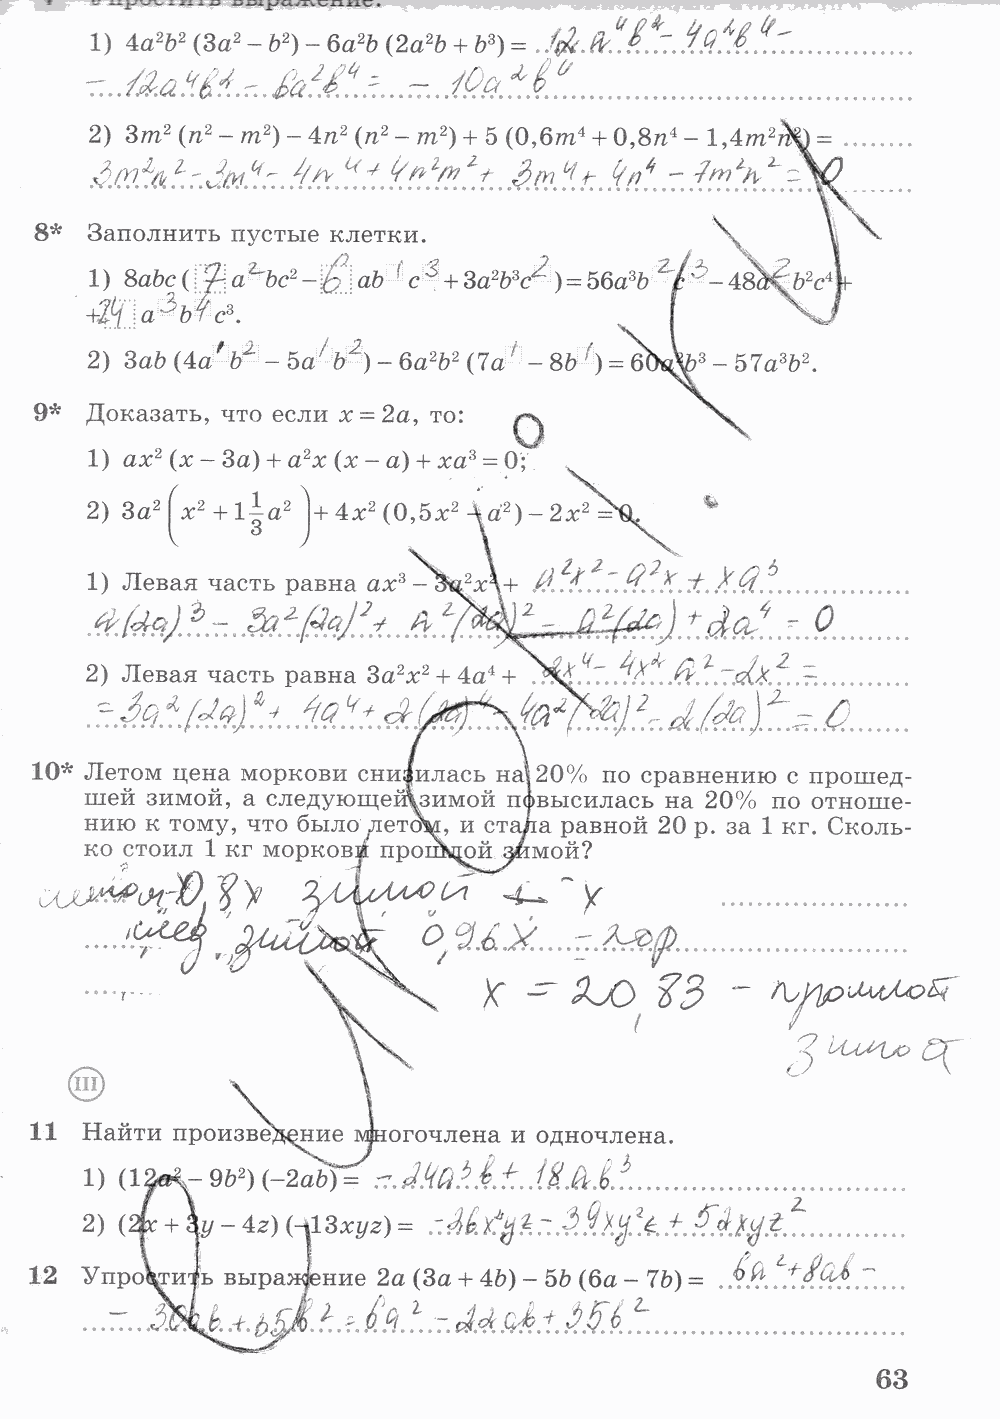 Упростить выражение.
1) 4a²b² (3a² – b²) – 6a²b (2a²b + b³) = 12a⁴b² – 4a²b⁴ –
– 12a⁴b² – 6a²b⁴ = – 10a²b⁴
2) 3m² (n² – m²) – 4n² (n² – m²) + 5 (0,6m⁴ + 0,8n⁴ – 1,4m²n²) =
3m²n² – 3m⁴ – 4n⁴ + 4n²m² + 3m⁴ + 4n⁴ – 7m²n² = 0
8* Заполнить пустые клетки.
1) 8abc (7a²bc² – 6ab¹c³ + 3a²b³c²) = 56a³b²c³ – 48a²b²c⁴ +
+24a³b⁴c³.
2) 3ab (4a¹b² – 5a¹b²) – 6a²b² (7a¹ – 8b¹) = 60a²b³ – 57a³b².
9* Доказать, что если x = 2a, то:
1) ax² (x – 3a) + a²x (x – a) + xa³ = 0;
2) 3a² (x² + 1 1/3 a²) + 4x² (0,5x² – a²) – 2x² = 0.
1) Левая часть равна ax³ – 3a²x² + a²x² – a²x + xa³
a(2a)³ – 3a²(2a)² + a²(2a)² – a²(2a) + 2a⁴ = 0
2) Левая часть равна 3a²x² + 4a⁴ + 2x⁴ – 4x² a² – 2x² =
= 3a²(2a)² + 4a⁴ + 2(2a)⁴ – 4a²(2a)² – 2(2a)² = 0
10* Летом цена моркови снизилась на 20% по сравнению с прошед-
шей зимой, а следующей зимой повысилась на 20% по отноше-
нию к тому, что было летом, и стала равной 20 р. за 1 кг. Сколь-
ко стоил 1 кг моркови прошлой зимой?
летом 0,8x зимой – x
след. зимой 0,96x = 20р
x = 20,83 – прошлой
зимой
III
11 Найти произведение многочлена и одночлена.
1) (12a² – 9b²) (–2ab) = – 24a³b + 18ab³
2) (2x + 3y – 4z) (–13xyz) = –26x²yz – 39xy²z + 52xyz²
12 Упростить выражение 2a (3a + 4b) – 5b (6a – 7b) = 6a² + 8ab –
– 30ab + 35b² = 6a² – 22ab + 35b²
63